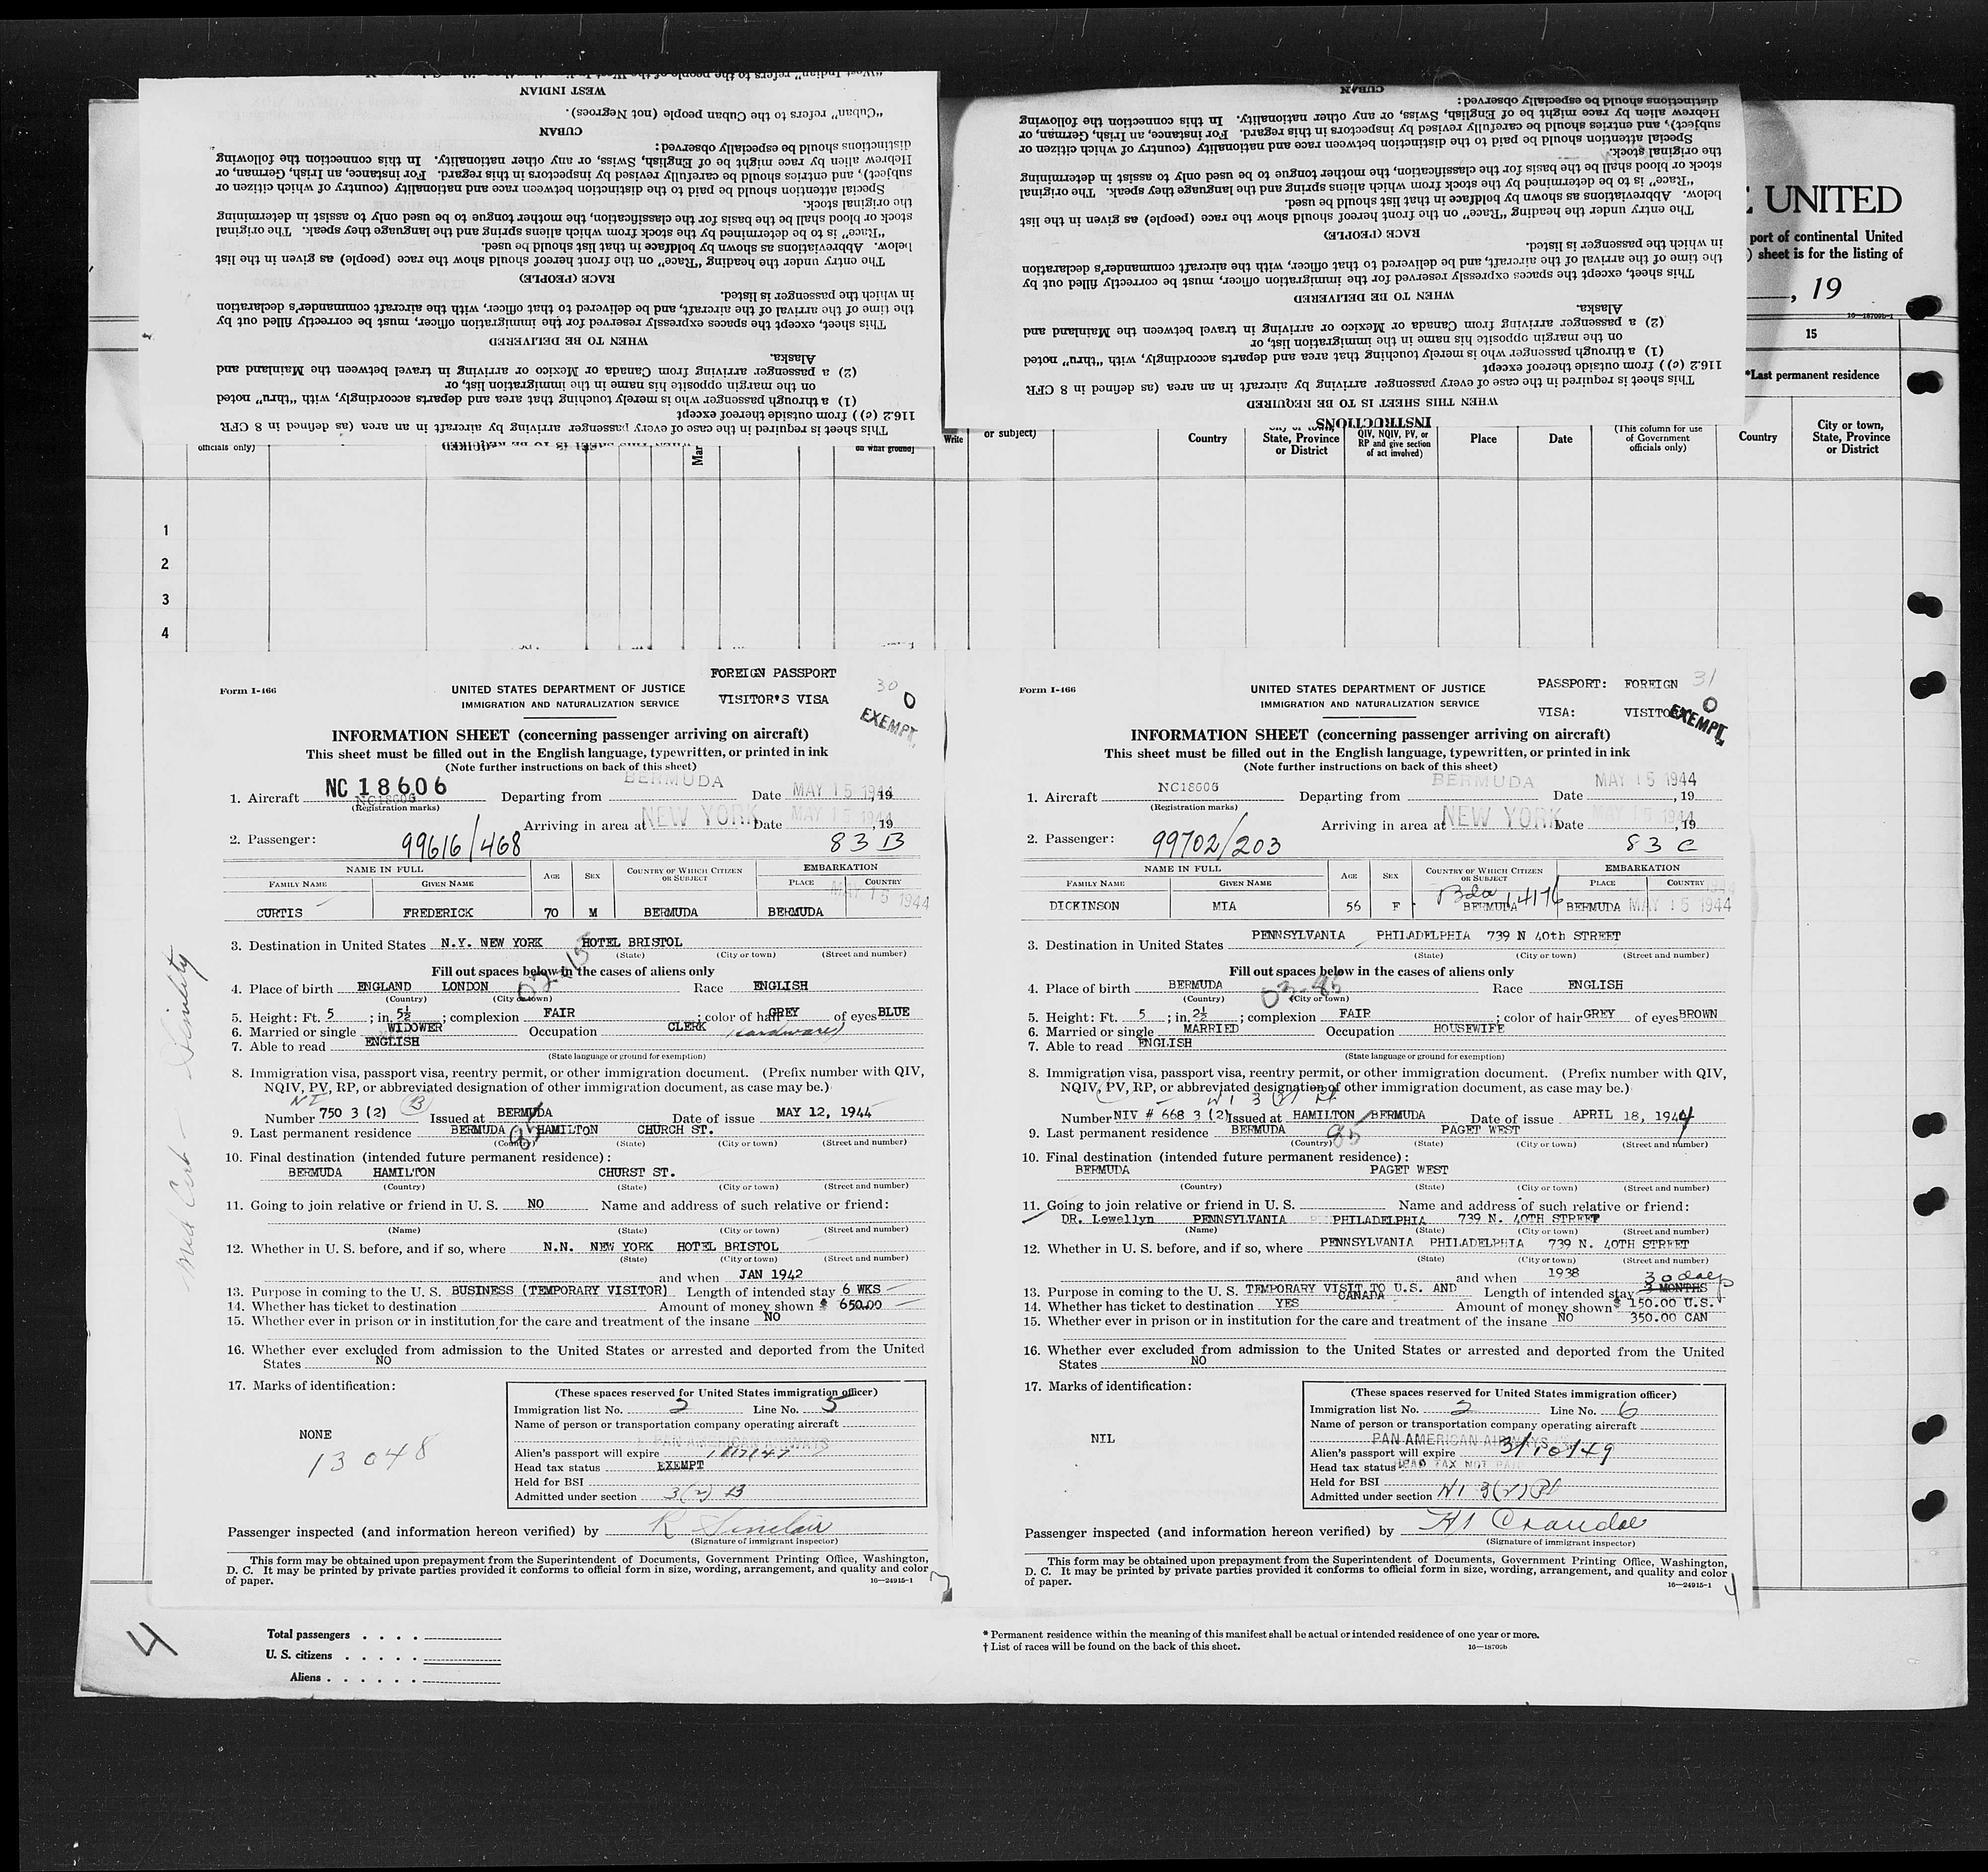 "West Indian" refers to the people of the West Indies
WEST INDIAN
"Cuban" refers to the Cuban people (not Negroes).
CUBAN
distinctions should be especially observed:
Hebrew alien by race might be of English, Swiss, or any other nationality. In this connection the following
subject), and entries should be carefully revised by inspectors in this regard. For instance, an Irish, German, or
Special attention should be paid to the distinction between race and nationality (country of which citizen or
the original stock.
stock or blood shall be the basis for the classification, the mother tongue to be used only to assist in determining
"Race" is to be determined by the stock from which aliens spring and the language they speak. The original
below. Abbreviations as shown by boldface in that list should be used.
The entry under the heading "Race" on the front hereof should show the race (people) as given in the list
RACE (PEOPLE)
in which the passenger is listed.
the time of the arrival of the aircraft, and be delivered to that officer, with the aircraft commander's declaration
This sheet, except the spaces expressly reserved for the immigration officer, must be correctly filled out by
WHEN TO BE DELIVERED
Alaska.
(2) a passenger arriving from Canada or Mexico or arriving in travel between the Mainland and
on the margin opposite his name in the immigration list, or
(1) a through passenger who is merely touching that area and departs accordingly, with "thru" noted
116.2 (c)) from outside thereof except
This sheet is required in the case of every passenger arriving by aircraft in an area (as defined in 8 CFR
WHEN THIS SHEET IS TO BE REQUIRED
CUBAN
distinctions should be especially observed:
Hebrew alien by race might be of English, Swiss, or any other nationality. In this connection the following
subject), and entries should be carefully revised by inspectors in this regard. For instance, an Irish, German, or
Special attention should be paid to the distinction between race and nationality (country of which citizen or
the original stock.
stock or blood shall be the basis for the classification, the mother tongue to be used only to assist in determining
"Race" is to be determined by the stock from which aliens spring and the language they speak. The original
below. Abbreviations as shown by boldface in that list should be used.
The entry under the heading "Race" on the front hereof should show the race (people) as given in the list
RACE (PEOPLE)
in which the passenger is listed.
the time of the arrival of the aircraft, and be delivered to that officer, with the aircraft commander's declaration
This sheet, except the spaces expressly reserved for the immigration officer, must be correctly filled out by
WHEN TO BE DELIVERED
Alaska.
(2) a passenger arriving from Canada or Mexico or arriving in travel between the Mainland and
on the margin opposite his name in the immigration list, or
(1) a through passenger who is merely touching that area and departs accordingly, with "thru" noted
116.2 (c)) from outside thereof except
This sheet is required in the case of every passenger arriving by aircraft in an area (as defined in 8 CFR
WHEN THIS SHEET IS TO BE REQUIRED
INSTRUCTIONS
E UNITED
port of continental United
) sheet is for the listing of
, 19
16—18709b-1
15
*Last permanent residence
officials only) Mar on what ground) Write or subject) Country City or town, State, Province or District QIV, NQIV, PV, or RP and give section of act involved) Place Date (This column for use of Government officials only) Country City or town, State, Province or District
1
2
3
4
FOREIGN PASSPORT
VISITOR'S VISA
30
0
EXEMPT
Form I-466
UNITED STATES DEPARTMENT OF JUSTICE
IMMIGRATION AND NATURALIZATION SERVICE
INFORMATION SHEET (concerning passenger arriving on aircraft)
This sheet must be filled out in the English language, typewritten, or printed in ink
(Note further instructions on back of this sheet)
1. Aircraft NC 18606 NC18606 Departing from BERMUDA Date MAY 15 1944, 19
(Registration marks)
Arriving in area at NEW YORK Date MAY 15 1944, 19
2. Passenger: 99616/468 83 B
NAME IN FULL AGE SEX COUNTRY OF WHICH CITIZEN OR SUBJECT EMBARKATION
FAMILY NAME GIVEN NAME PLACE COUNTRY
MAY 15 1944
CURTIS FREDERICK 70 M BERMUDA BERMUDA
3. Destination in United States N.Y. NEW YORK HOTEL BRISTOL
(State) (City or town) (Street and number)
Fill out spaces below in the cases of aliens only
4. Place of birth ENGLAND LONDON Race ENGLISH
(Country) (City or town)
5. Height: Ft. 5; in. 5½; complexion FAIR; color of hair GREY of eyes BLUE
6. Married or single WIDOWER Occupation CLERK (hardware)
7. Able to read ENGLISH
(State language or ground for exemption)
8. Immigration visa, passport visa, reentry permit, or other immigration document. (Prefix number with QIV,
NQIV, PV, RP, or abbreviated designation of other immigration document, as case may be.)
NI B
Number 750 3 (2) Issued at BERMUDA Date of issue MAY 12, 1944
9. Last permanent residence BERMUDA HAMILTON CHURCH ST.
85
(Country) (State) (City or town) (Street and number)
10. Final destination (intended future permanent residence):
BERMUDA HAMILTON CHURST ST.
(Country) (State) (City or town) (Street and number)
11. Going to join relative or friend in U. S. NO Name and address of such relative or friend:
(Name) (State) (City or town) (Street and number)
12. Whether in U. S. before, and if so, where N.N. NEW YORK HOTEL BRISTOL
(State) (City or town) (Street and number)
and when JAN 1942
13. Purpose in coming to the U. S. BUSINESS (TEMPORARY VISITOR) Length of intended stay 6 WKS
14. Whether has ticket to destination Amount of money shown $ 650.00
15. Whether ever in prison or in institution for the care and treatment of the insane NO
16. Whether ever excluded from admission to the United States or arrested and deported from the United
States NO
17. Marks of identification:
NONE
13048
(These spaces reserved for United States immigration officer)
Immigration list No. 2 Line No. 5
Name of person or transportation company operating aircraft
PAN AMERICAN AIRWAYS
Alien's passport will expire
Head tax status EXEMPT
Held for BSI
Admitted under section 3(2) B
Passenger inspected (and information hereon verified) by R Sinclair
(Signature of immigrant inspector)
This form may be obtained upon prepayment from the Superintendent of Documents, Government Printing Office, Washington,
D. C. It may be printed by private parties provided it conforms to official form in size, wording, arrangement, and quality and color
of paper.
16—24915-1
PASSPORT: FOREIGN 31
VISA: VISITOR
0
EXEMPT
Form I-466
UNITED STATES DEPARTMENT OF JUSTICE
IMMIGRATION AND NATURALIZATION SERVICE
INFORMATION SHEET (concerning passenger arriving on aircraft)
This sheet must be filled out in the English language, typewritten, or printed in ink
(Note further instructions on back of this sheet)
1. Aircraft NC18606 Departing from BERMUDA Date MAY 15 1944, 19
(Registration marks)
Arriving in area at NEW YORK Date MAY 15 1944, 19
2. Passenger: 99702/203 83 C
NAME IN FULL AGE SEX COUNTRY OF WHICH CITIZEN OR SUBJECT EMBARKATION
FAMILY NAME GIVEN NAME PLACE COUNTRY
Bda 14176
DICKINSON MIA 56 F BERMUDA BERMUDA MAY 15 1944
3. Destination in United States PENNSYLVANIA PHILADELPHIA 739 N 40th STREET
(State) (City or town) (Street and number)
Fill out spaces below in the cases of aliens only
4. Place of birth BERMUDA Race ENGLISH
03-85
(Country) (City or town)
5. Height: Ft. 5; in. 2½; complexion FAIR; color of hair GREY of eyes BROWN
6. Married or single MARRIED Occupation HOUSEWIFE
7. Able to read ENGLISH
(State language or ground for exemption)
8. Immigration visa, passport visa, reentry permit, or other immigration document. (Prefix number with QIV,
NQIV, PV, RP, or abbreviated designation of other immigration document, as case may be.)
Number NIV # 668 3 (2) Issued at HAMILTON BERMUDA Date of issue APRIL 18, 1944
9. Last permanent residence BERMUDA PAGET WEST
85
(Country) (State) (City or town) (Street and number)
10. Final destination (intended future permanent residence):
BERMUDA PAGET WEST
(Country) (State) (City or town) (Street and number)
11. Going to join relative or friend in U. S. Name and address of such relative or friend:
DR. Lewellyn PENNSYLVANIA PHILADELPHIA 739 N. 40TH STREET
(Name) (State) (City or town) (Street and number)
12. Whether in U. S. before, and if so, where PENNSYLVANIA PHILADELPHIA 739 N. 40TH STREET
(State) (City or town) (Street and number)
and when 1938 30 days
13. Purpose in coming to the U. S. TEMPORARY VISIT TO U.S. AND CANADA Length of intended stay 3 MONTHS
14. Whether has ticket to destination YES Amount of money shown $ 150.00 U.S.
15. Whether ever in prison or in institution for the care and treatment of the insane NO 350.00 CAN
16. Whether ever excluded from admission to the United States or arrested and deported from the United
States NO
17. Marks of identification:
NIL
(These spaces reserved for United States immigration officer)
Immigration list No. 2 Line No. 6
Name of person or transportation company operating aircraft
PAN AMERICAN AIRWAYS
Alien's passport will expire 3/10/49
Head tax status HEAD TAX NOT PAID
Held for BSI
Admitted under section NI 3(2) Pl
Passenger inspected (and information hereon verified) by
(Signature of immigrant inspector)
This form may be obtained upon prepayment from the Superintendent of Documents, Government Printing Office, Washington,
D. C. It may be printed by private parties provided it conforms to official form in size, wording, arrangement, and quality and color
of paper.
16—24915-1
4
Total passengers . . . .
U. S. citizens . . . . .
Aliens . . . . . .
* Permanent residence within the meaning of this manifest shall be actual or intended residence of one year or more.
† List of races will be found on the back of this sheet.
16—18709b